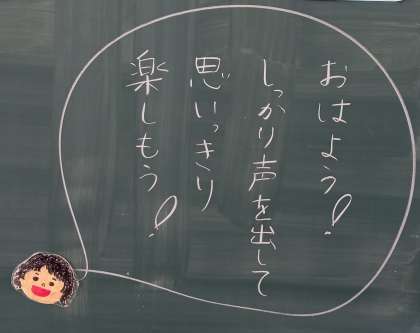 おはよう!
しっかり声を出して
思いっきり
楽しもう!